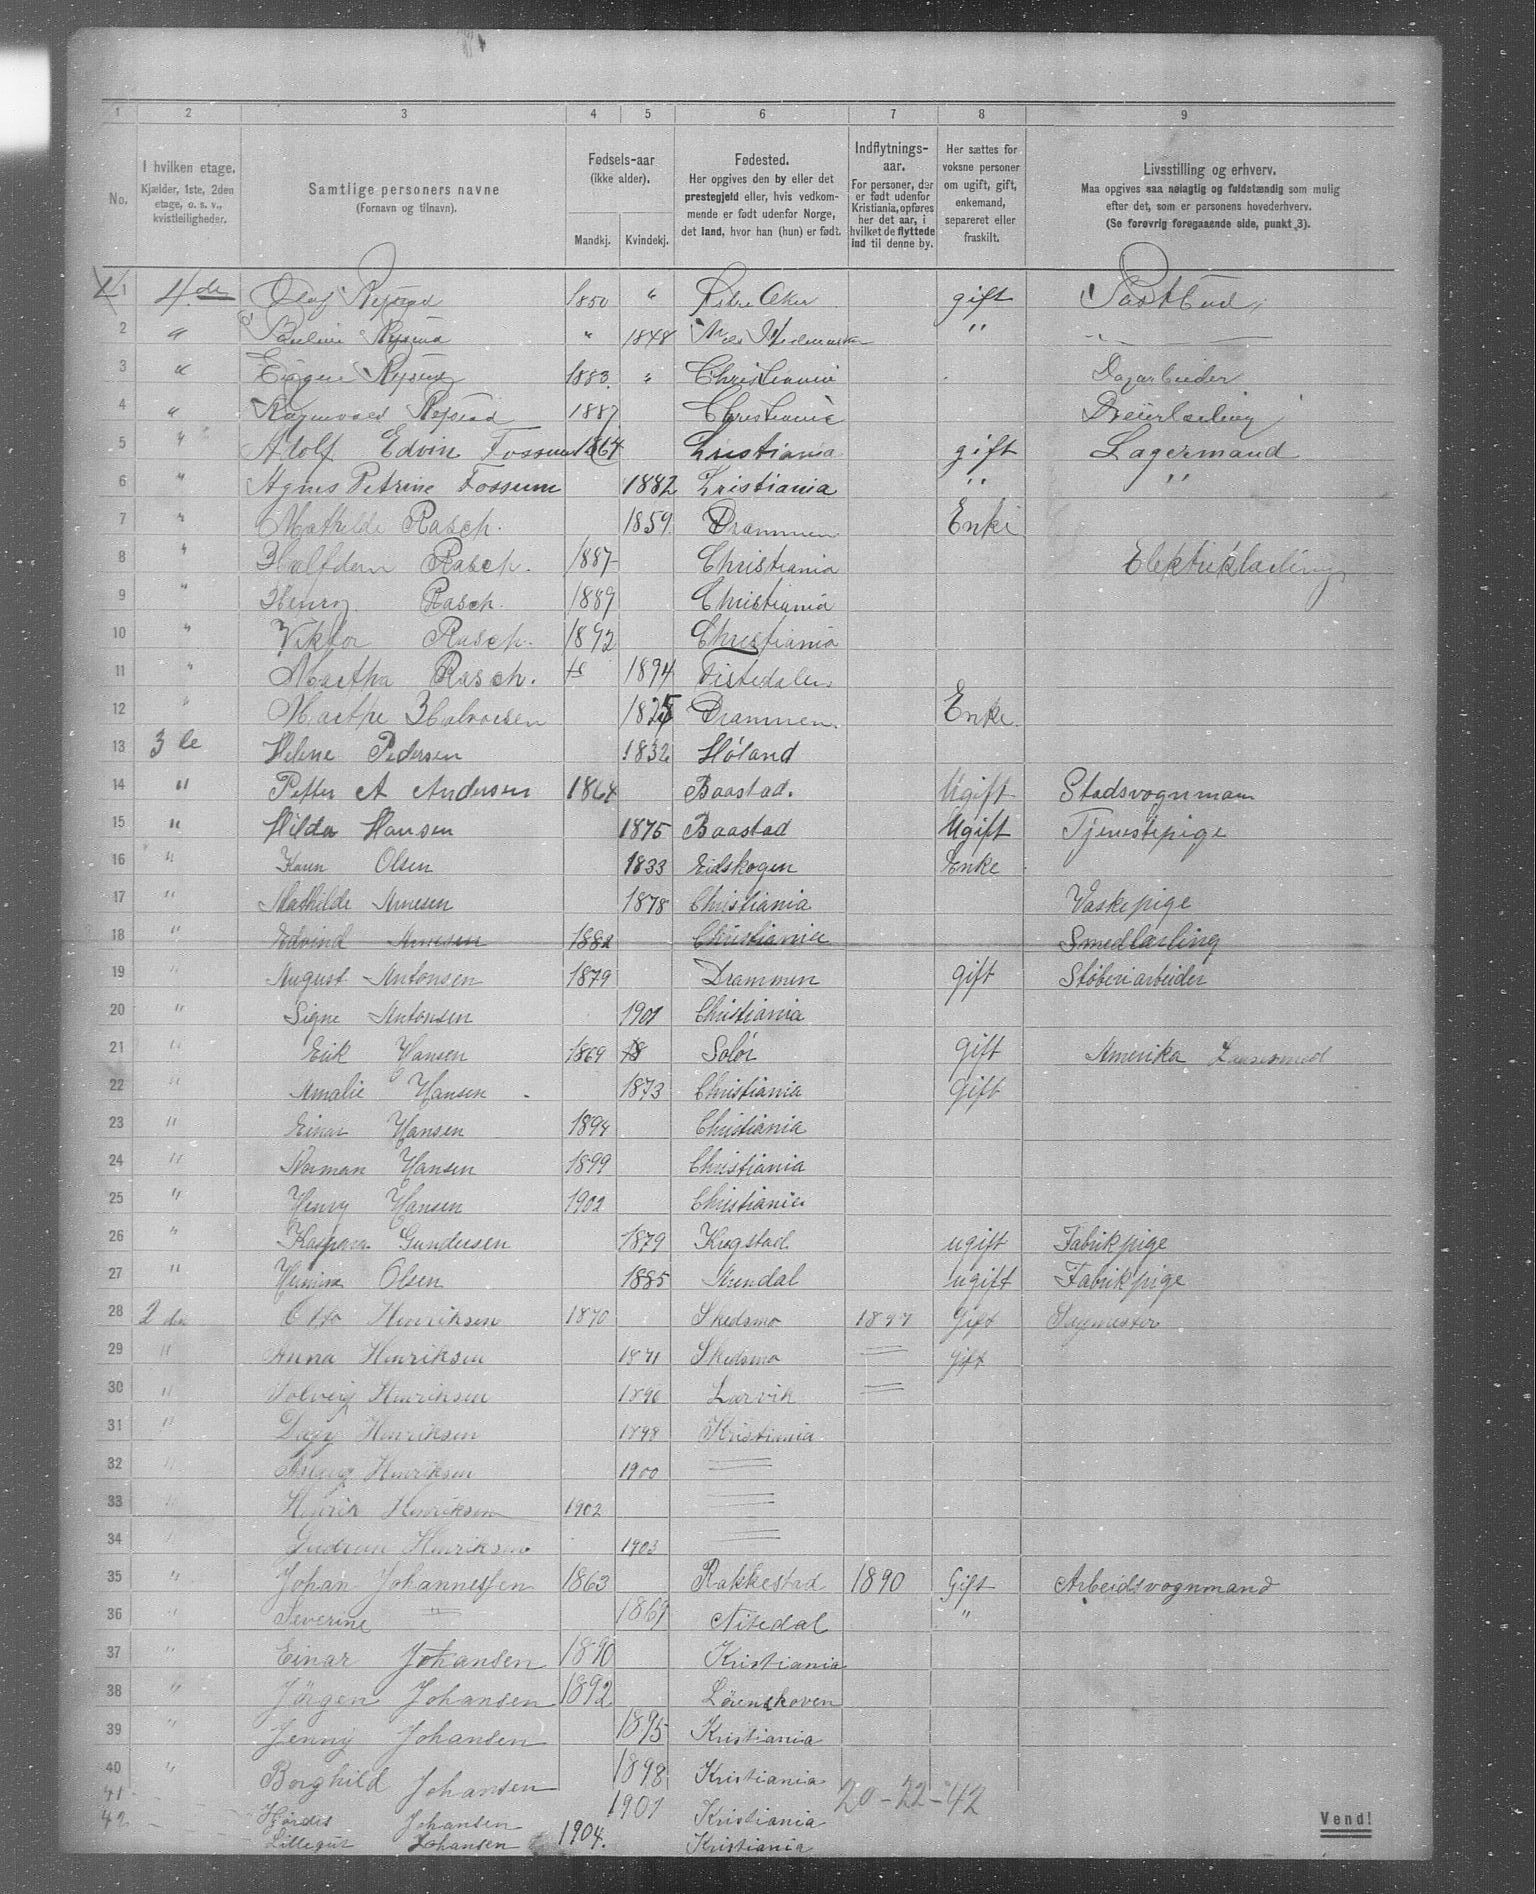 1 2 3 4 5 6 7 8 9
No.
I hvilken etage.
Kjælder, 1ste, 2den
etage, o. s. v.,
kvistleiligheder.
Samtlige personers navne
(Fornavn og tilnavn).
Fødsels-aar
(ikke alder).
Mandkj. Kvindekj.
Fødested.
Her opgives den by eller det
prestegjeld eller, hvis vedkom-
mende er født udenfor Norge,
det land, hvor han (hun) er født.
Indflytnings-
aar.
For personer, der
er født udenfor
Kristiania, opføres
her det aar, i
hvilket de flyttede
ind til denne by.
Her sættes for
voksne personer
om ugift, gift,
enkemand,
separeret eller
fraskilt.
Livsstilling og erhverv.
Maa opgives saa nøiagtig og fuldstændig som mulig
efter det, som er personens hovederhverv.
(Se forøvrig foregaaende side, punkt 3).
1 4de Olaf 1850 " Aker gift Postbud
2 " 1848 "
3 " 1883 " Christiania Dagarbeider
4 " 1887 Christiania Dreierlærling
5 " Adolf Edvin Fossum 1864 Kristiania gift Lagermand
6 " Agnes Petrine Fossum 1882 Kristiania " "
7 " Mathilde Rasch. 1859 Drammen Enke
8 " Halfdan Rasch. 1887 Christiania Elektriklærling
9 " Henry Rasch. 1889 Christiania
10 " Viktor Rasch. 1892 Christiania
11 " Martha Rasch. 18 1894 Tistedalen
12 " Marthe Halvorsen Drammen. Enke.
13 3de Helene Pedersen 1832 Høland
14 " Petter A Andersen 1864 Baastad. Ugift Stadsvognman
15 " Hilda Hansen 1875 Baastad Ugift Tjenestepige
16 " Karen Olsen 1833 Eidskogen Enke
17 " Mathilde Arnesen 1878 Christiania Vaskepige
18 " Edvind Arnesen 1882 Christiania Smedlærling
19 " August Antonsen 1879 Drammen gift Støberiarbeider
20 " Signe Antonsen 1901 Christiania
21 " Erik Hansen 1869 18 Solør gift Amerika
22 " Amalie Hansen 1873 Christiania Gift
23 " Einar Hansen 1894 Christiania
24 " Norman Hansen 1899 Christiania
25 " Henry Hansen 1902 Christiania
26 " Kaspara Gundersen 1879 Krogstad ugift Fabrikpige
27 " Olsen 1885 ugift Fabrikpige
28 2den Otto Henriksen 1870 Skedsmo 1897 Gift Sagmester
29 " Anna Henriksen 1871 Skedsmo = gift
30 " Solveig Henriksen 1896 Larvik =
31 " Dagny Henriksen 1898 Kristiania
32 " Henriksen 1900 =
33 " Henrik Henriksen 1902 =
34 " Gudrun Henriksen 1903 =
35 " Johan Johannessen 1863 Rakkestad 1890 Gift Arbeidsvognmand
36 " Severine " 1869 Nitedal "
37 " Einar Johansen 1890 Kristiania
38 " Jørgen Johansen 1892 Lørenskoven
39 " Jenny Johansen 1895 Kristiania
40 " Borghild Johansen 1898 Kristiania
41 Hjørdis Johansen 1901 Kristiania 20-22-42
42 Lillegut Johansen 1904. Kristiania
Vend!